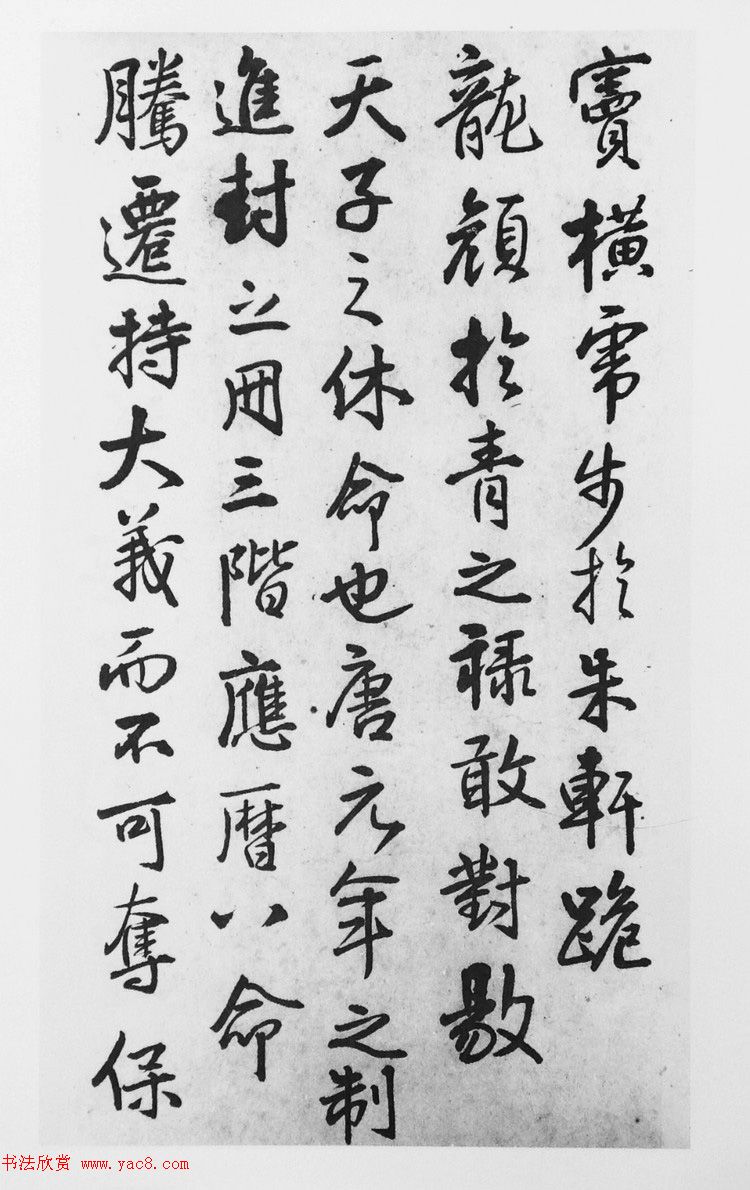 橫步於朱軒跪
龍顔於青之祿敢對敭
天子之休命也唐元年之制
進封之冊三階應暦八命
騰遷持大義而不可奪保
书法欣赏 www.yac8.com